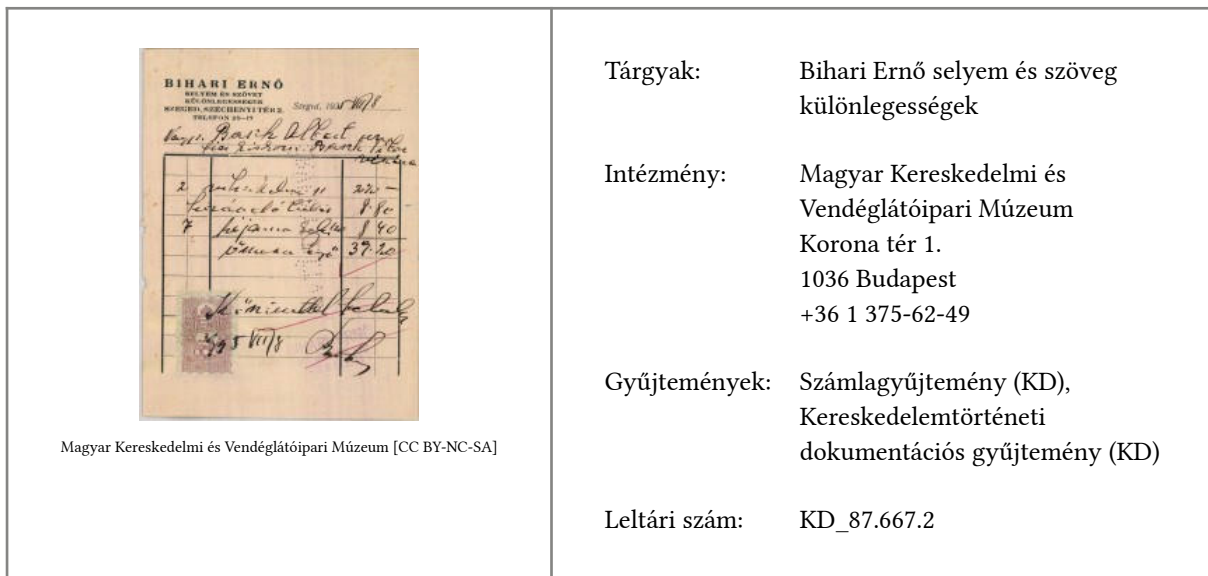 BIHARI ERNŐ
SELYEM ÉS SZÖVET
KÜLÖNLEGESSÉGEK
SZEGED, SZÉCHENYI TÉR 2.
TELEFON 25-17
Szeged, 1935 VIII/8
Barch Albert
2
8.80
7 8 40
39.20
VIII/8
Magyar Kereskedelmi és Vendéglátóipari Múzeum [CC BY-NC-SA]
Tárgyak: Bihari Ernő selyem és szöveg
különlegességek
Intézmény: Magyar Kereskedelmi és
Vendéglátóipari Múzeum
Korona tér 1.
1036 Budapest
+36 1 375-62-49
Gyűjtemények: Számlagyűjtemény (KD),
Kereskedelemtörténeti
dokumentációs gyűjtemény (KD)
Leltári szám: KD_87.667.2